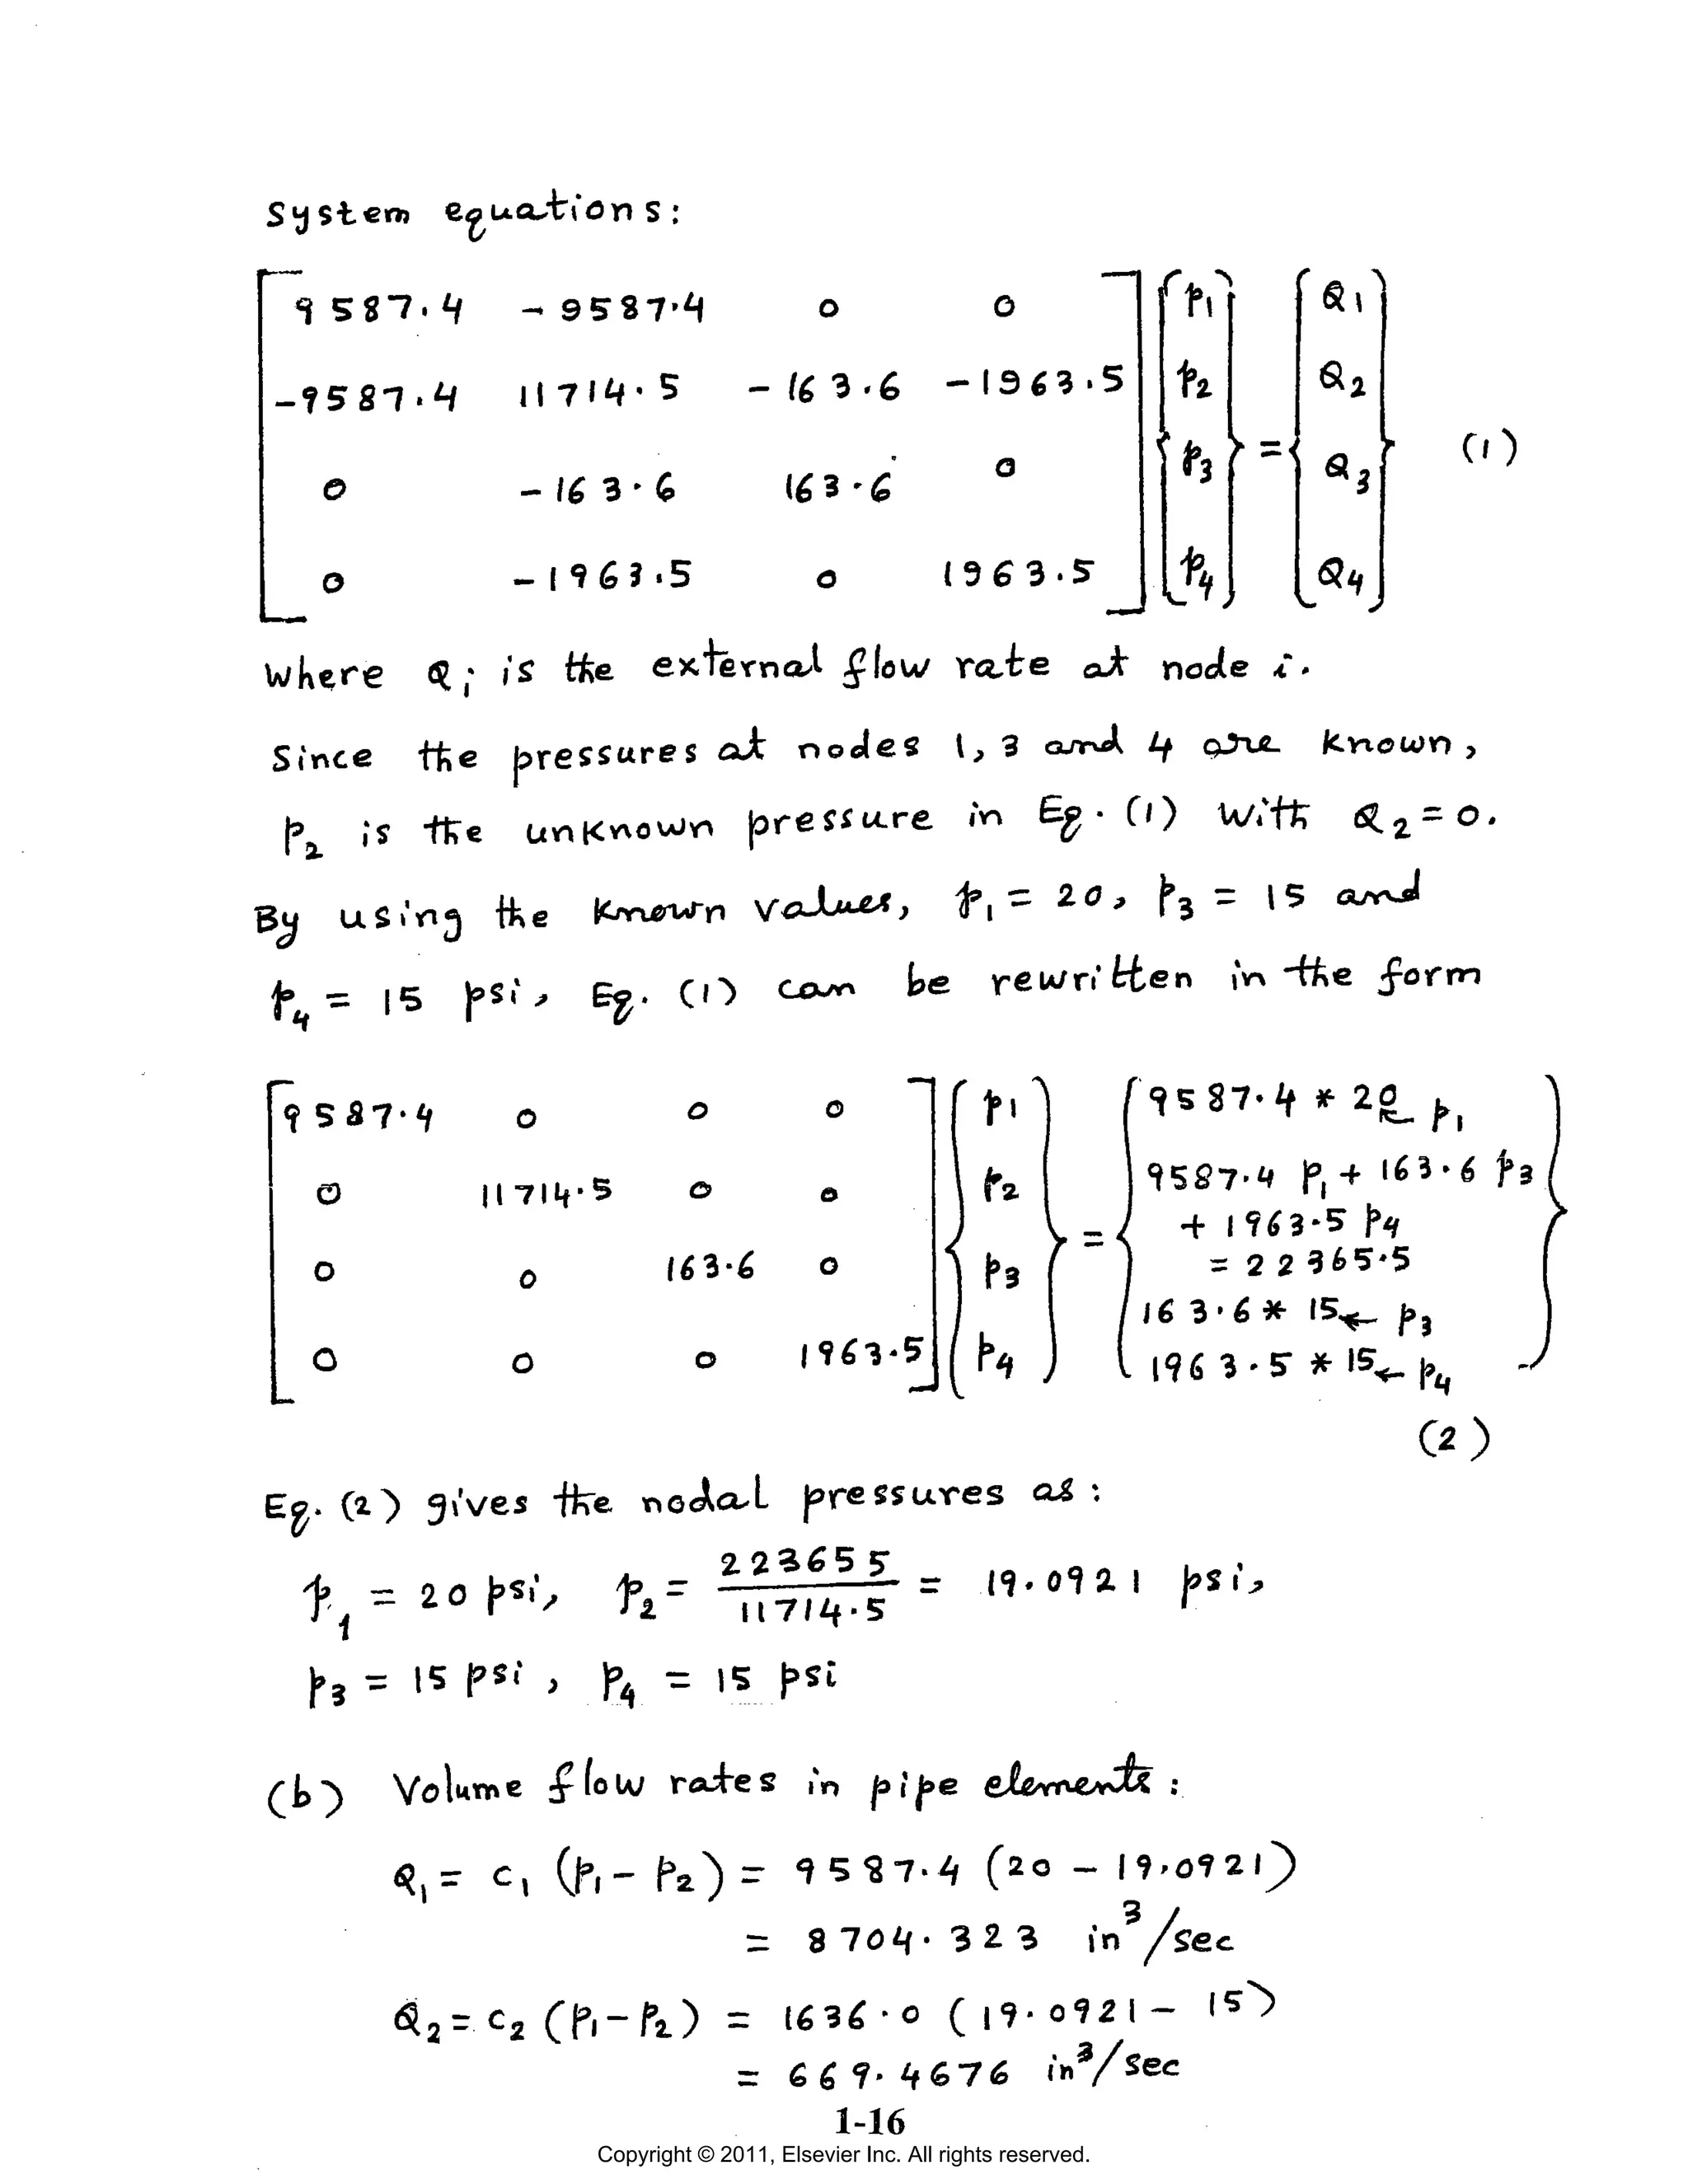 System equations:
[ 9587.4 -9587.4 0 0 ] { p1 } { Q1 }
[ -9587.4 11714.5 -163.6 -1963.5 ] { p2 } { Q2 }
[ 0 -163.6 163.6 0 ] { p3 } = { Q3 } (1)
[ 0 -1963.5 0 1963.5 ] { p4 } { Q4 }
where Qi is the external flow rate at node i.
Since the pressures at nodes 1, 3 and 4 are known,
P2 is the unknown pressure in Eq. (1) with Q2 = 0.
By using the known values, p1 = 20, p3 = 15 and
p4 = 15 psi, Eq. (1) can be rewritten in the form
[ 9587.4 0 0 0 ] { p1 } { 9587.4 * 20 ← p1 }
[ 0 11714.5 0 0 ] { p2 } = { 9587.4 P1 + 163.6 p3
+ 1963.5 P4
= 22365.5
[ 0 0 163.6 0 ] { p3 } 163.6 * 15 ← p3
[ 0 0 0 1963.5 ] { p4 } 1963.5 * 15 ← p4 }
(2)
Eq. (2) gives the nodal pressures as:
p1 = 20 psi, p2 = 223655 / 11714.5 = 19.0921 psi,
p3 = 15 psi, P4 = 15 psi
(b) Volume flow rates in pipe elements:
Q1 = c1 (P1 - P2) = 9587.4 (20 - 19.0921)
= 8704.323 in³/sec
Q2 = c2 (P1 - P2) = 1636.0 (19.0921 - 15)
= 669.4676 in³/sec
1-16
Copyright © 2011, Elsevier Inc. All rights reserved.